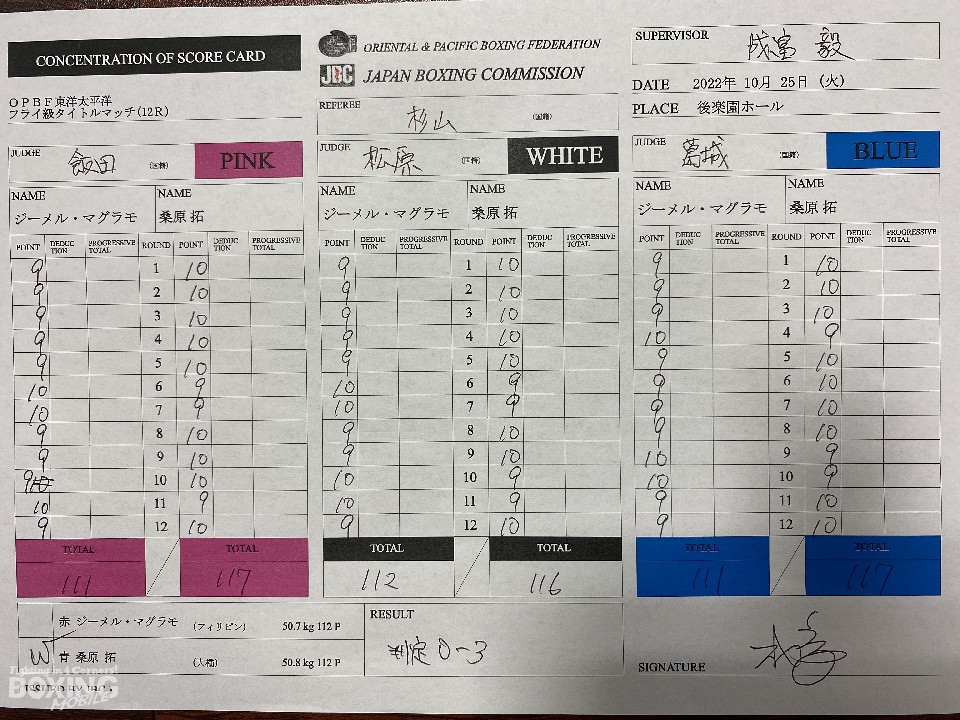 CONCENTRATION OF SCORE CARD
OPBF東洋太平洋
フライ級タイトルマッチ(12R)
ORIENTAL & PACIFIC BOXING FEDERATION
JBC JAPAN BOXING COMMISSION
REFEREE 杉山 (国籍)
SUPERVISOR 成富 毅
DATE 2022年 10月 25日 (火)
PLACE 後楽園ホール
JUDGE 飯田 (国籍) PINK
NAME NAME
ジーメル・マグラモ 桑原 拓
POINT DEDUCTION PROGRESSIVE TOTAL ROUND POINT DEDUCTION PROGRESSIVE TOTAL
9 1 10
9 2 10
9 3 10
9 4 10
9 5 10
10 6 9
10 7 9
9 8 10
9 9 10
9 10 10 10
10 11 9
9 12 10
TOTAL TOTAL
111 / 117
JUDGE 松原 (国籍) WHITE
NAME NAME
ジーメル・マグラモ 桑原 拓
POINT DEDUCTION PROGRESSIVE TOTAL ROUND POINT DEDUCTION PROGRESSIVE TOTAL
9 1 10
9 2 10
9 3 10
9 4 10
9 5 10
10 6 9
10 7 9
9 8 10
9 9 10
10 10 9
10 11 9
9 12 10
TOTAL TOTAL
112 / 116
JUDGE 葛城 (国籍) BLUE
NAME NAME
ジーメル・マグラモ 桑原 拓
POINT DEDUCTION PROGRESSIVE TOTAL ROUND POINT DEDUCTION PROGRESSIVE TOTAL
9 1 10
9 2 10
9 3 10
10 4 9
9 5 10
9 6 10
9 7 10
9 8 10
10 9 9
10 10 9
9 11 10
9 12 10
TOTAL TOTAL
111 / 117
赤 ジーメル・マグラモ (フィリピン) 50.7 kg 112 P
W 青 桑原 拓 (大橋) 50.8 kg 112 P
RESULT
判定 0-3
SIGNATURE
ISSUED BY JBC
Fighting in 4 Corners!
BOXING
MOBILE